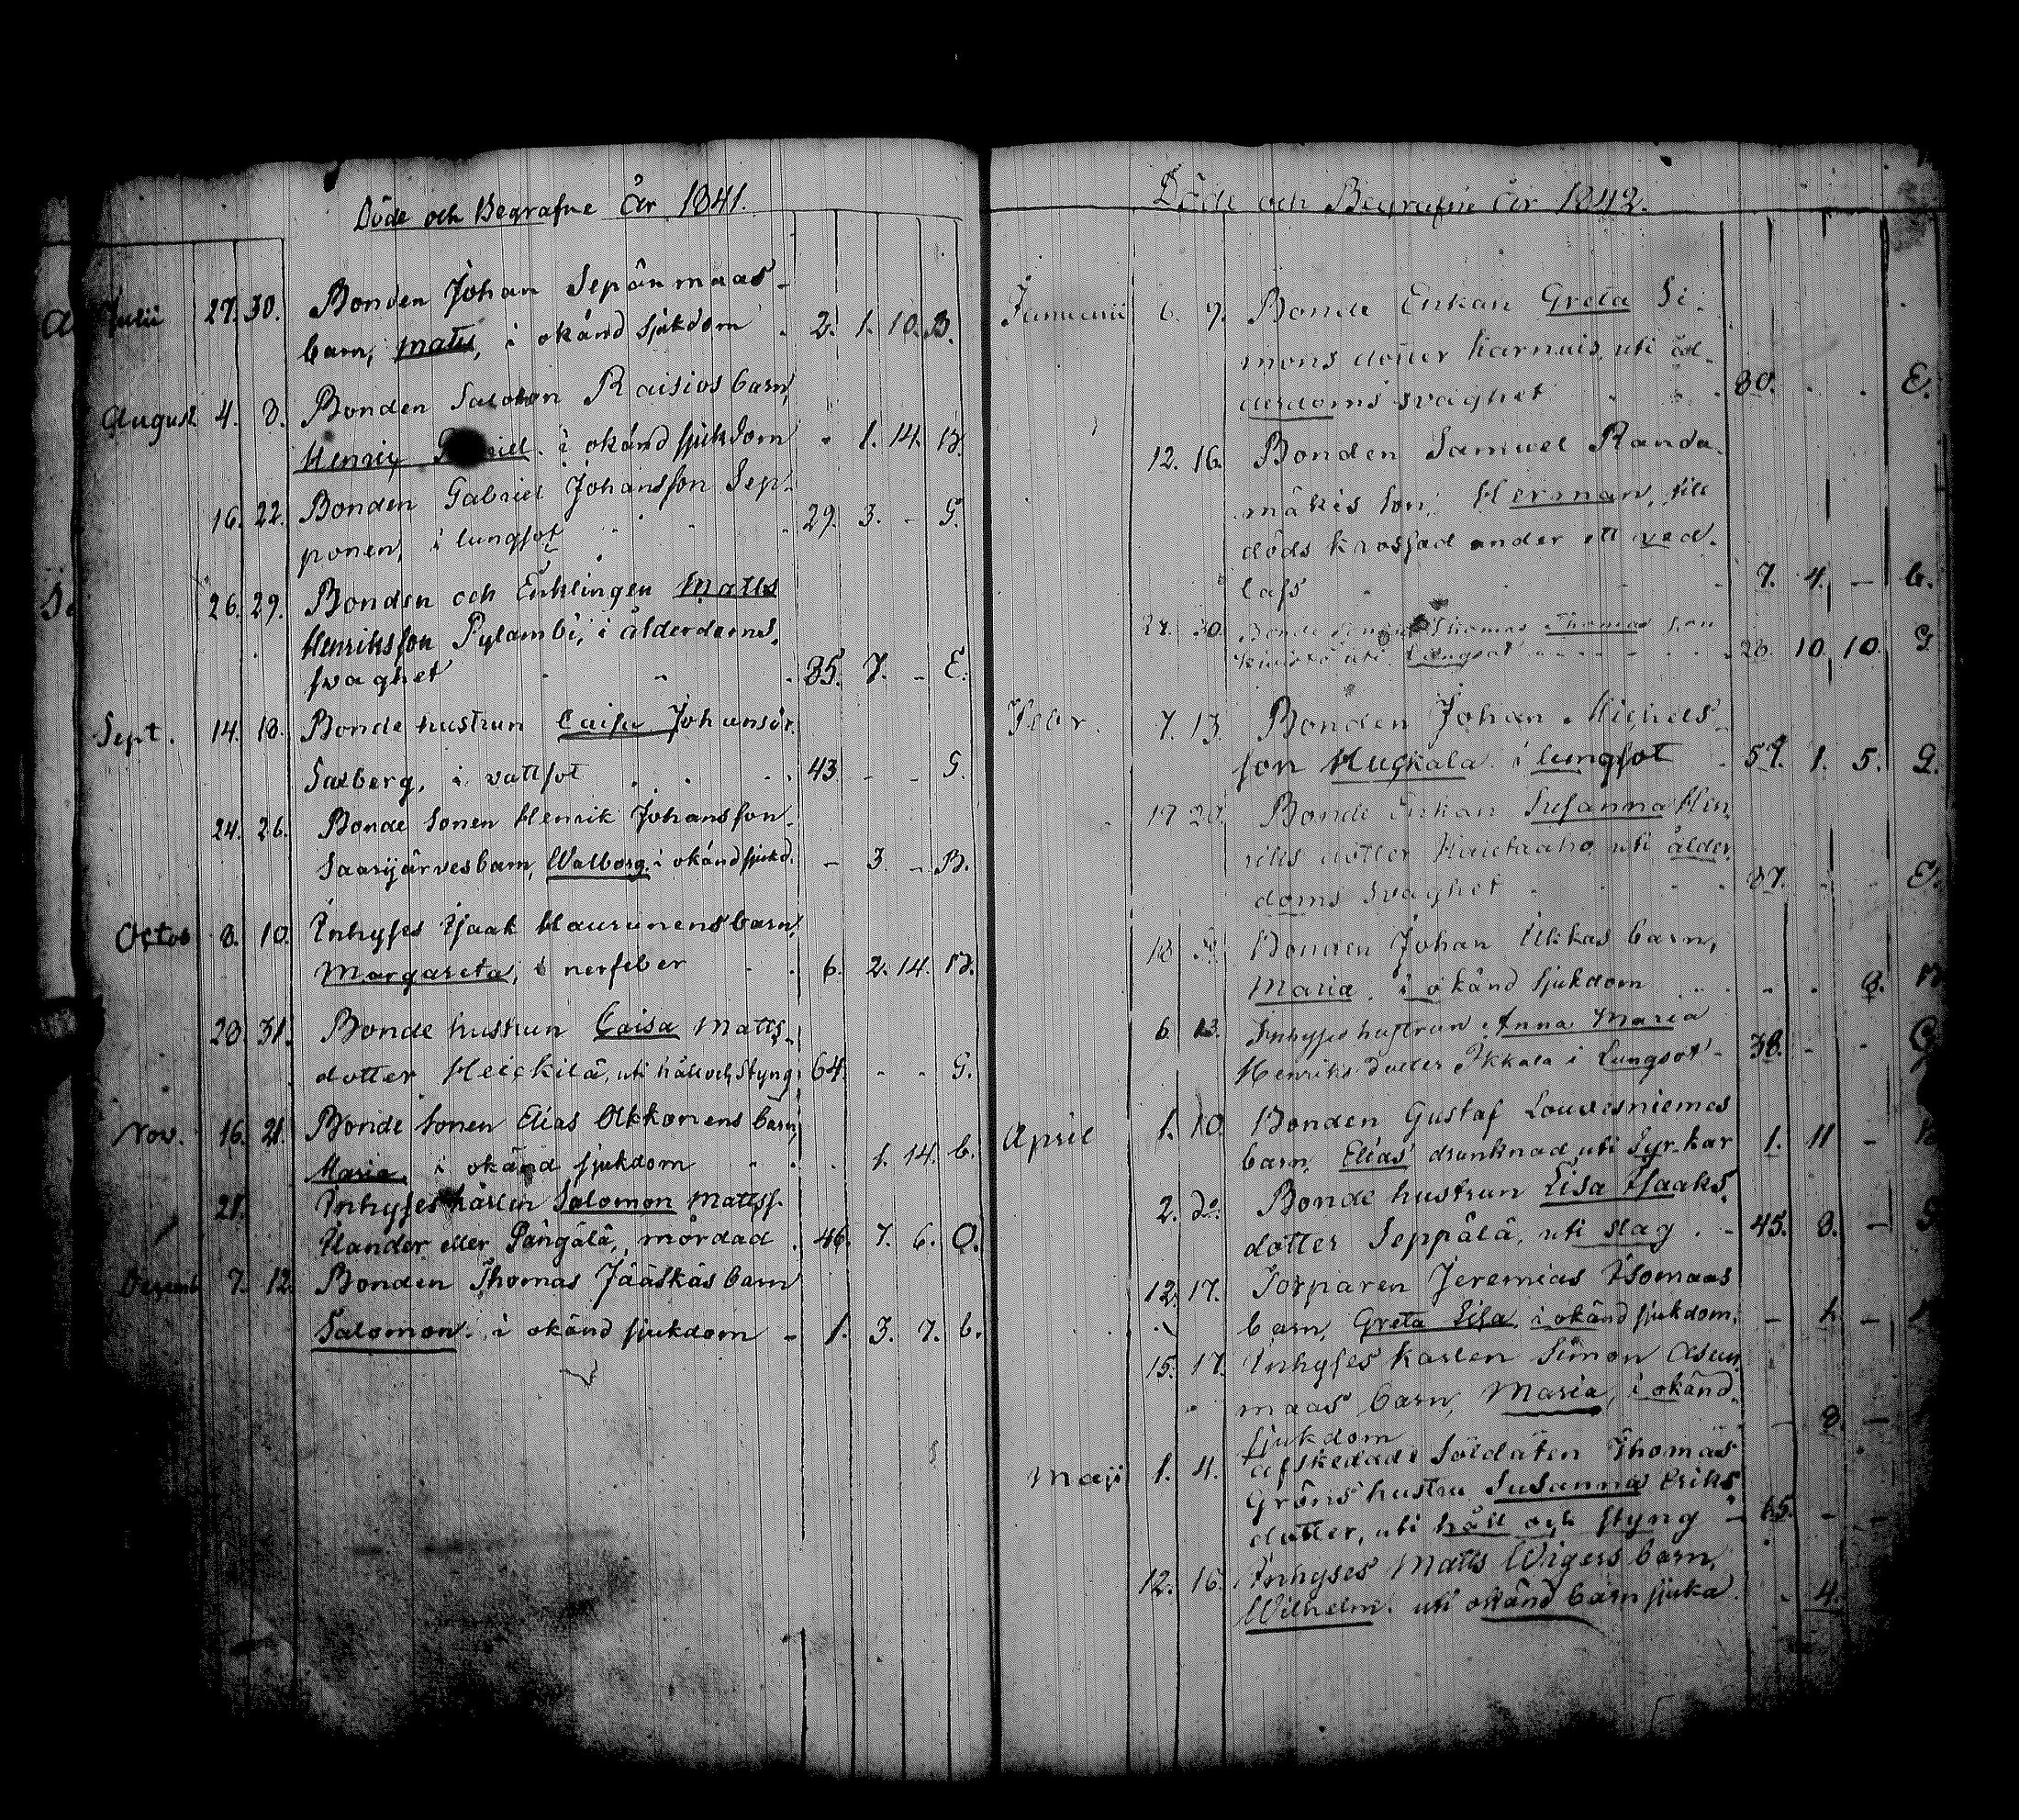 Döde och Begrafne År 1841.
Julii 27. 30. Bonden Johan Sepänmaas
barn, Matts, i okänd sjukdom . 2. 1. 10. B.
August. 4. 8. Bonden Salomon Raisios barn,
Henric i okänd sjukdom . 1. 14. B.
16. 22. Bonden Gabriel Johansson Sep-
ponen, i lungsot 29. 3. - G.
26. 29. Bonden och Enklingen Matts
Henriksson Pylambi, i ålderdoms
svaghet 85. 7. - E.
Sept. 14. 18. Bonde hustrun Caisa Johansdr.
Saxberg, i vattsot . . . 43. - - G.
24. 26. Bonde Sonen Henrik Johansson
Saarijärves barn, Walborg, i okänd sjukd. - 3. - B.
Octob 8. 10. Inhyses Isaak Haurunens barn,
Margareta, i nerfeber 6. 2. 14. B.
28. 31. Bonde hustrun Caisa Matts-
dotter Heickilä, uti håll och Styng 64. - - G.
Nov. 16. 21. Bonde Sonen Elias Ukkonens barn,
Maria, i okänd sjukdom . 1. 14. b.
21. Inhyses karlen Salomon Mattss.
eller Pängälä, mördad . 46. 7. 6. O.
Decemb 7. 12. Bonden Thomas Jääskäs barn
Salomon, i okänd sjukdom - 1. 3. 7. b.
Döde och Begrafne År 1842.
Januarii 6. 9. Bonde Enkan Greta Si-
mons dotter Karnais, uti ål-
derdoms svaghet 80. . . E.
12. 16. Bonden Samuel Randa-
mäkis Son, Herman, till
döds krossad under ett ved-
lass 7. 4. - b.
30. Bonde Thomas Thomas son
uti Lungsot 28. 10. 10. G
Febr. 7. 13. Bonden Johan Michels
son Huckala i lungsot 59. 1. 5. G.
17 20. Bonde Enkan Susanna Hin-
riks dotter Hautaaho, uti ålder-
doms svaghet 87. - - E.
18 Bonden Johan Ukkas barn,
Maria, i okänd sjukdom - . 8.
6. 13. Inhyses hustrun Anna Maria
Henriks dotter Ikkala i Lungsot - 38. - - G
April 1. 10. Bonden Gustaf Louvesniemes
barn, Elias drunknad uti Syr-kar 1. 11 -
2. do. Bonde hustrun Lisa Isaaks
dotter Seppälä, uti slag . 45. 8. - G
12. 17. Torparen Jeremias Isomaas
barn, Greta Lisa, i okänd sjukdom,
15. 17. Inhyses karlen Simon Asun-
maas barn, Maria, i okänd
sjukdom - 8. -
Maji 1. 4. afskedade Soldaten Thomas
Gröns hustru Susanna Eriks
dotter, uti håll och styng - 65. - -
12. 16. Inhyses Matts Wigers barn,
Wilhelm, uti okänd barnsjuka . 4.